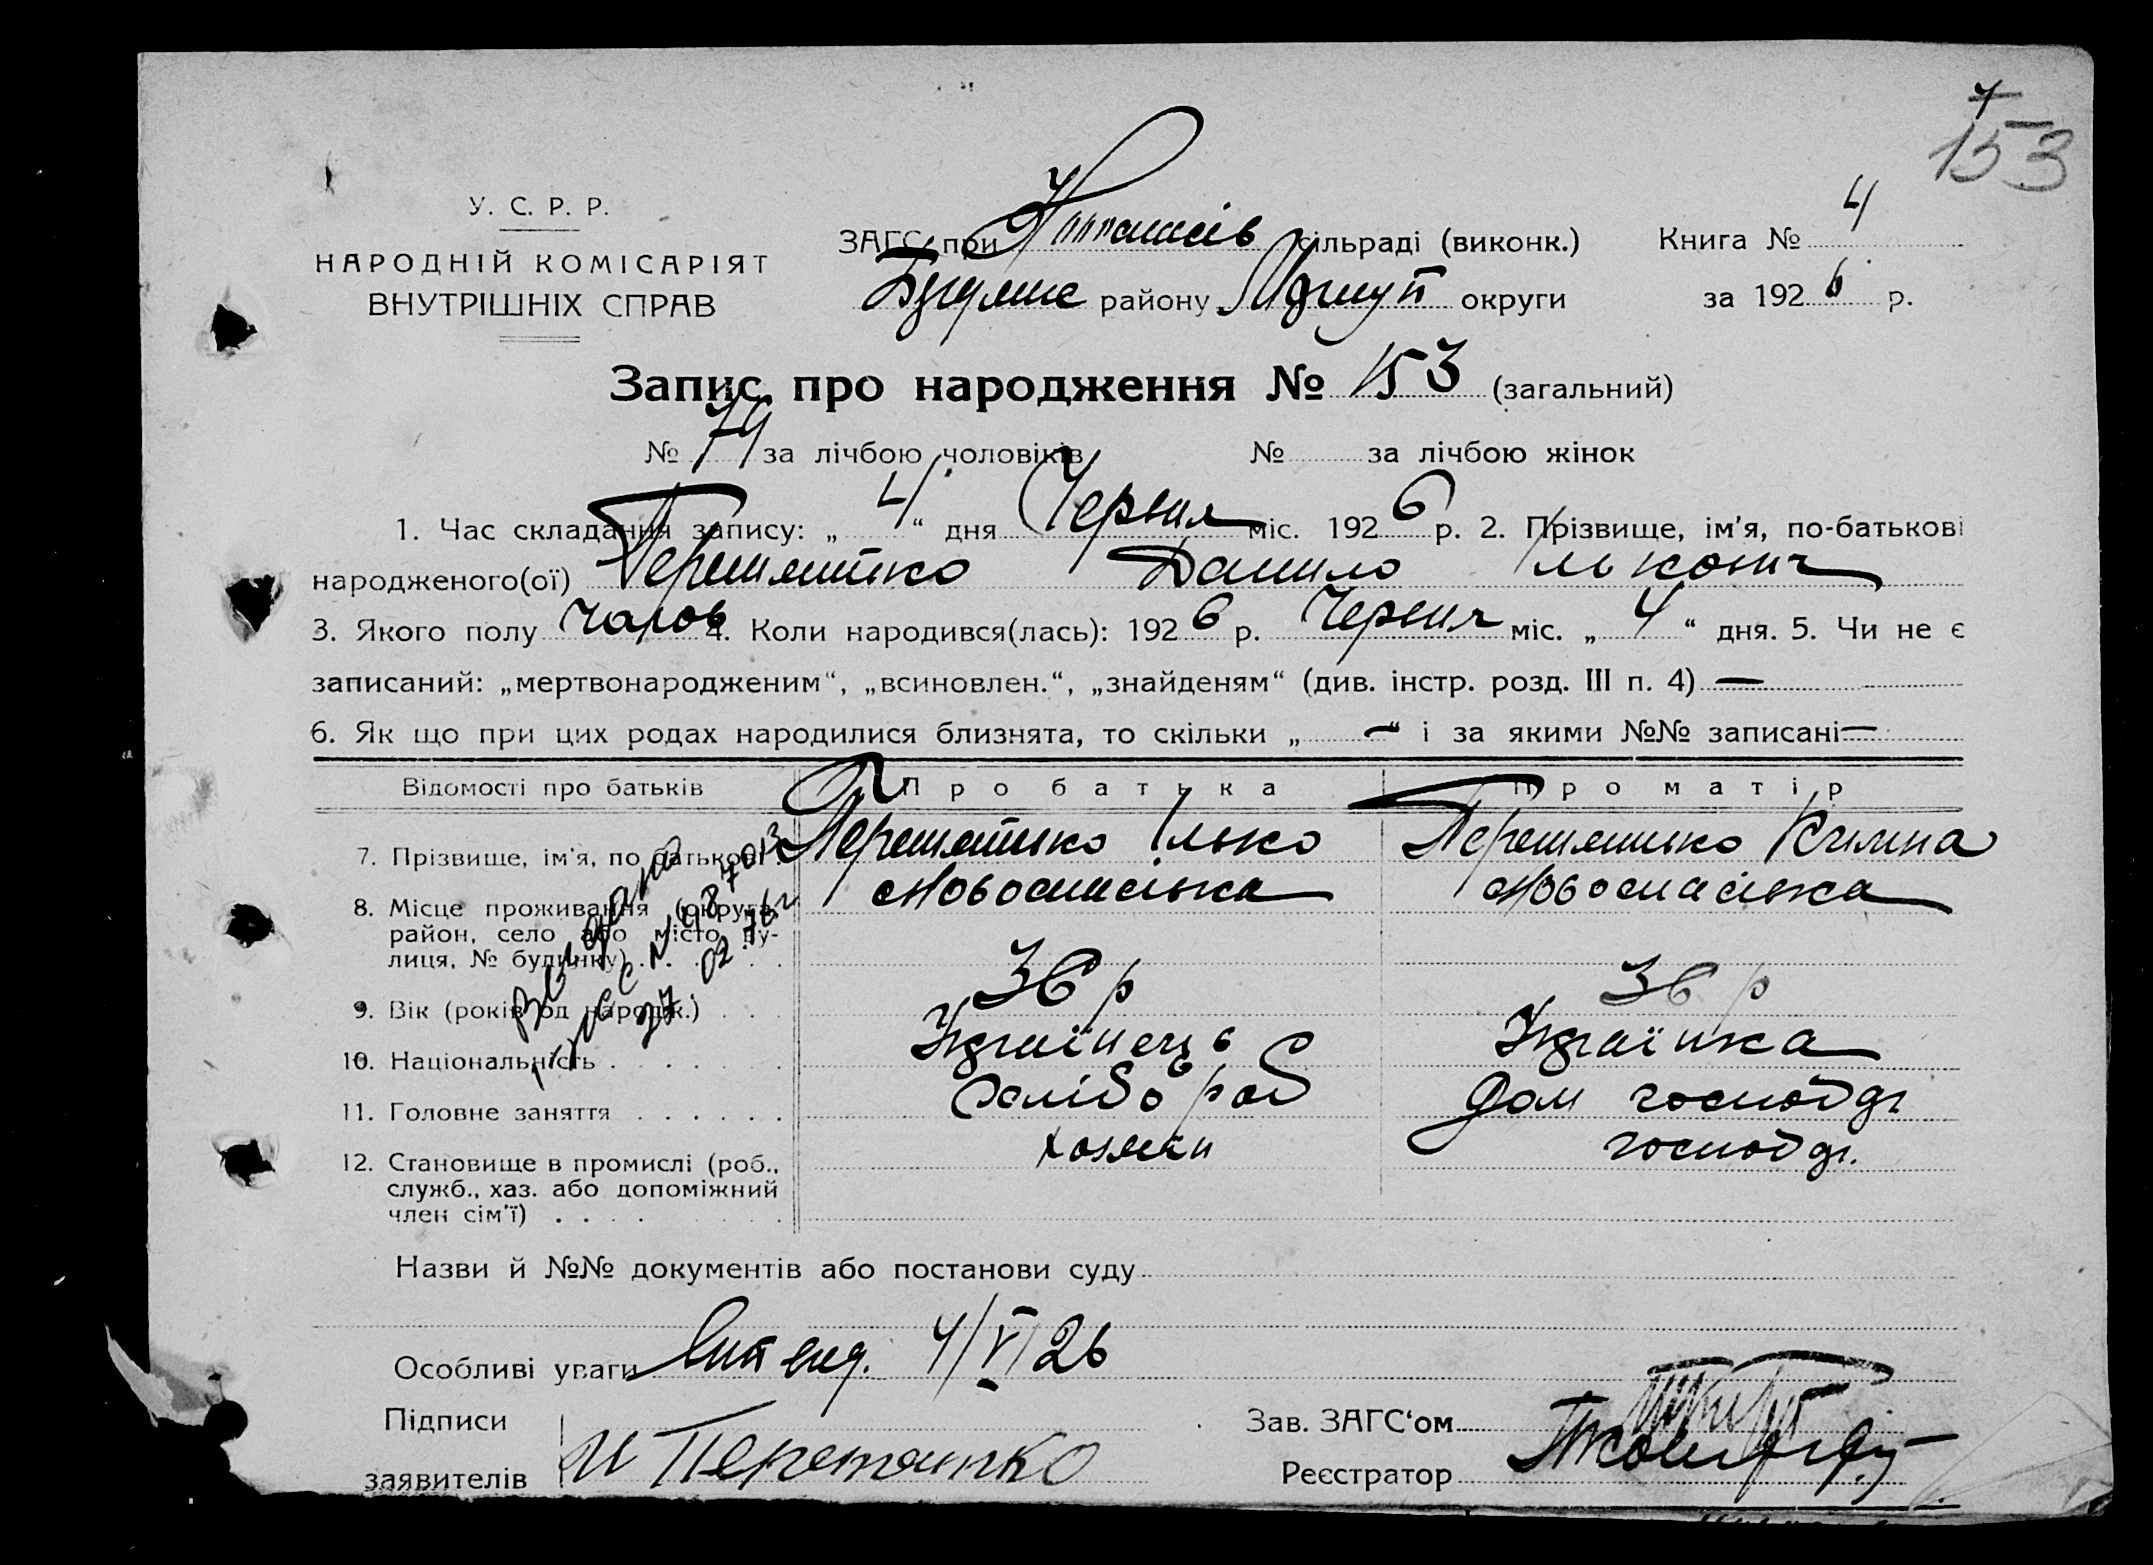 153
У. С. Р. Р.
НАРОДНІЙ КОМІСАРІЯТ
ВНУТРІШНІХ СПРАВ
ЗАГС при сільраді (виконк.) Книга № 4
району округи за 1926 р.
Запис про народження № 153 (загальний)
№ 79 за лічбою чоловіків № за лічбою жінок
1. Час складання запису: „ 4 “ дня Червня міс. 1926 р. 2. Прізвище, ім'я, по-батькові
народженого(ої) Перемятько Данило Ількович
3. Якого полу чолов 4. Коли народився(лась): 1926 р. Червня міс. „ 4 “ дня. 5. Чи не є
записаний: „мертвонародженим“, „всиновлен.“, „знайденям“ (див. інстр. розд. III п. 4) —
6. Як що при цих родах народилися близнята, то скільки „ — “ і за якими №№ записані —
Відомості про батьків Про батька Про матір
7. Прізвище, ім'я, по батькові Перемятько Ілько Перемятько Килина
8. Місце проживання (округа, район, село або місто, вулиця, № будинку) Новоспаська Новоспаська
9. Вік (років од народж.) 36 р 36 р
10. Національність Українець Українка
11. Головне заняття Хлібороб Дом господ
12. Становище в промислі (роб., хозяїн господ.
служб., хаз. або допоміжний
член сім'ї)
27.02.76г
Назви й №№ документів або постанови суду
Особливі уваги 4/VI 26
Підписи Зав. ЗАГС'ом
заявителів И Перетятько Реєстратор